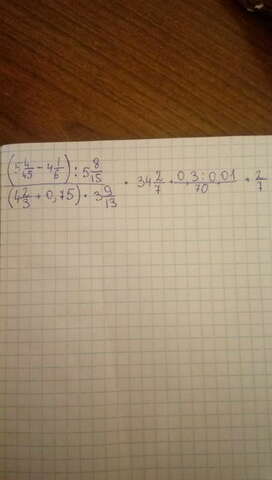 (5 4/45 - 4 1/6) : 5 8/15
(4 2/3 + 0,75) · 3 9/13
· 34 2/7 + 0,3 : 0,01
70
+ 2/7